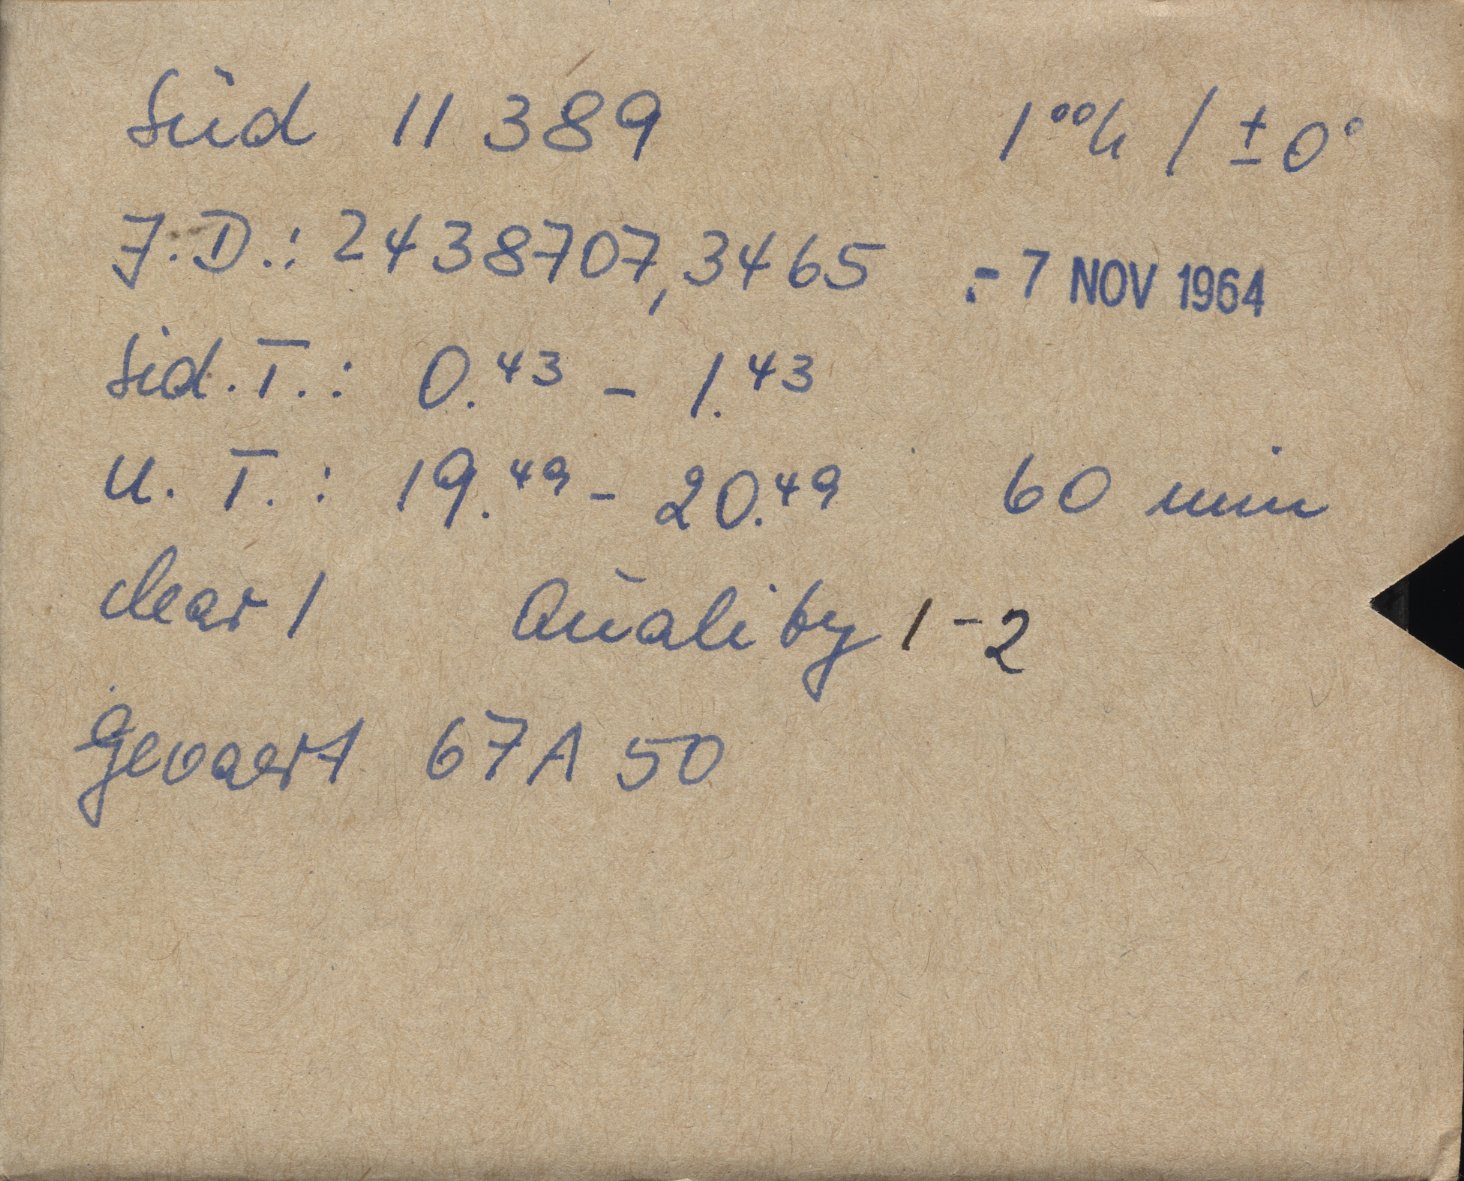 Süd 11 389 1⁰⁰h / ±0°
J.D.: 2438707,3465 - 7 NOV 1964
Sid.T.: 0.⁴³ - 1.⁴³
U.T.: 19.⁴⁹ - 20.⁴⁹ 60 min
clear 1 Quality 1-2
Gevaert 67A50